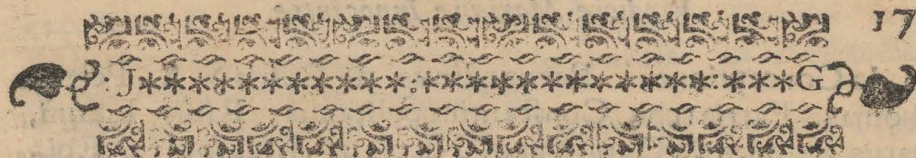 17
J***********.************:***G